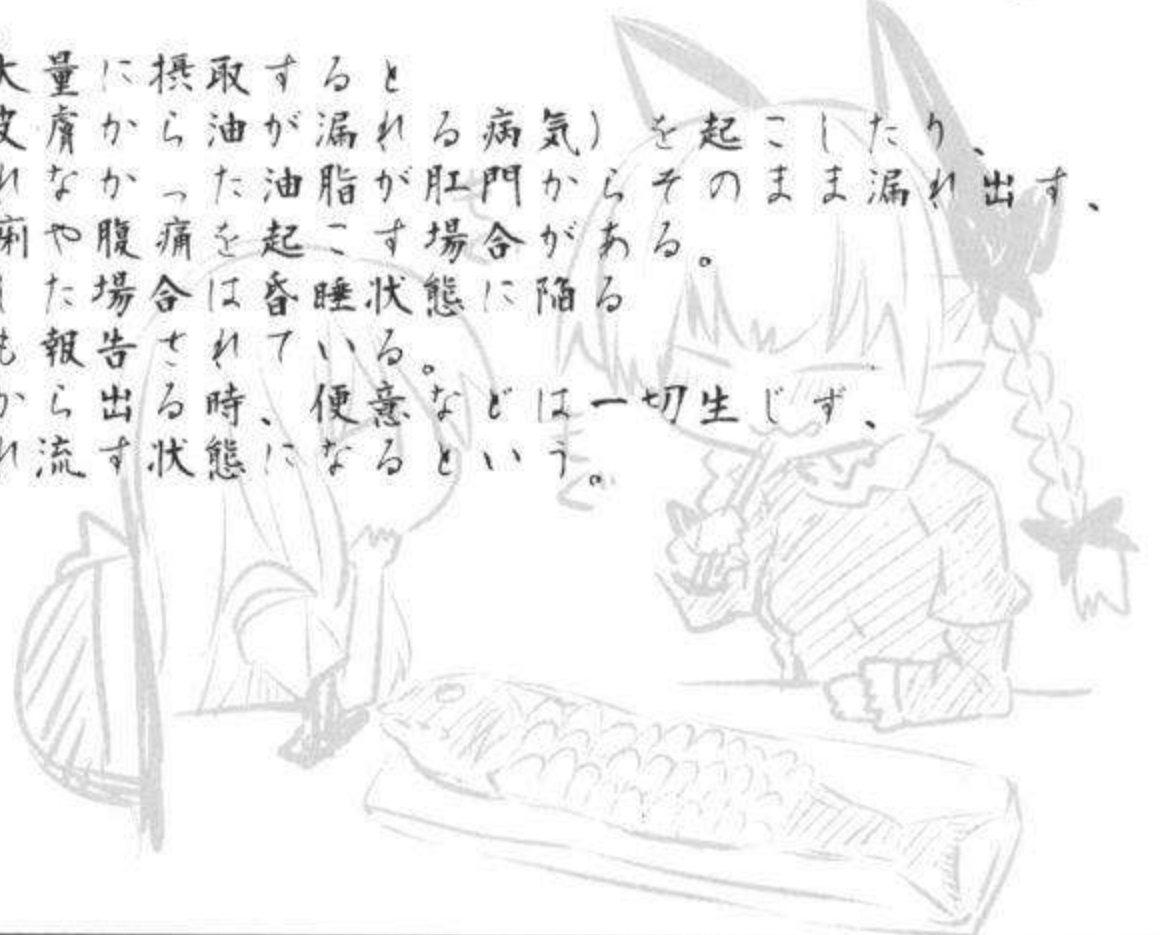 大量に摂取すると
皮膚から油が漏れる病気）を起こしたり、
れなかった油脂が肛門からそのまま漏れ出す、
痢や腹痛を起こす場合がある。
した場合は昏睡状態に陥る
も報告されている。
から出る時、便意などは一切生じず、
れ流す状態になるという。